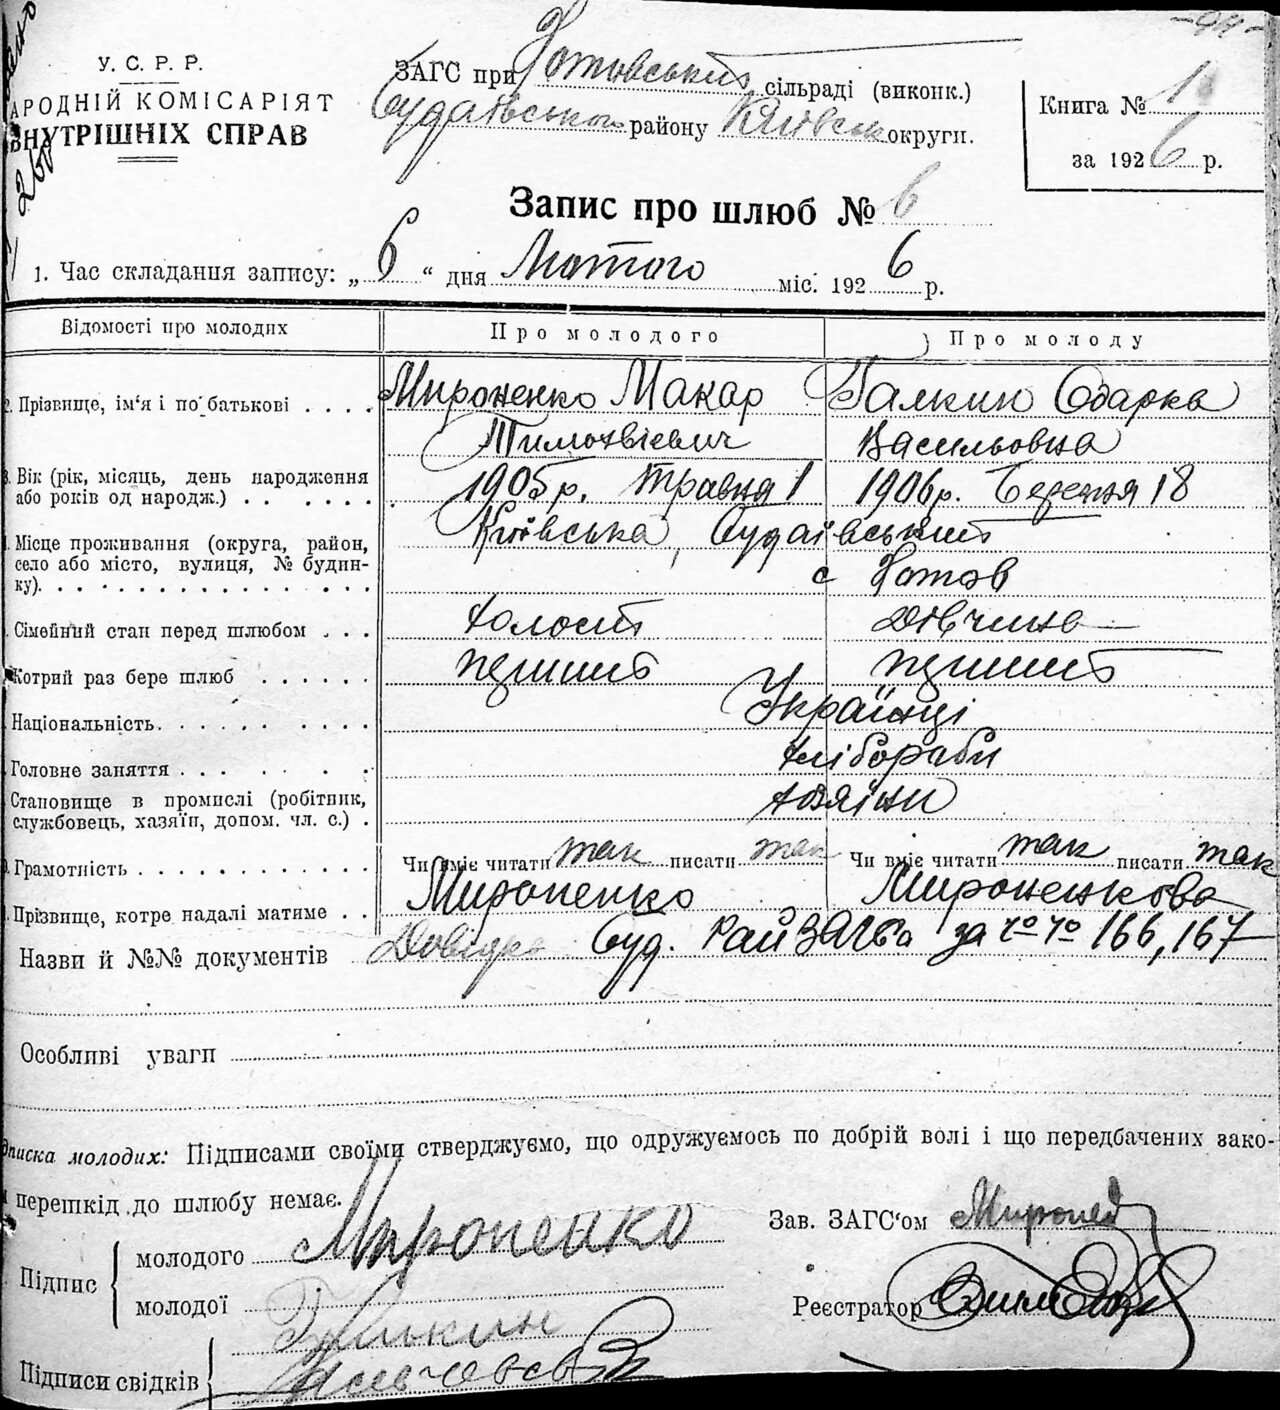 -94-
У. С. Р. Р.
АРОДНІЙ КОМІСАРІЯТ
ВНУТРІШНІХ СПРАВ
ЗАГС при Хотовський сільраді (виконк.)
Будаївськом району Київськ округи.
Книга № 1
за 1926 р.
Запис про шлюб № 6
1. Час складання запису: „ 6 “ дня Лютого міс. 1926 р.
Відомості про молодих
Про молодого
Про молоду
2. Прізвище, ім‘я і по батькові . . . .
Мироненко Макар
Тимохвієвич
Галкин Одарка
Васильовна
Вік (рік, місяць, день народження
або років од народж.) . . . . . . .
1905 р. травня 1
1906 р. Березня 18
Місце проживання (округа, район,
село або місто, вулиця, № будин-
ку). . . . . . . . . . . . . . . .
Київська, Будаївський
с Хотов
Сімейний стан перед шлюбом . . .
холост
дівчина
Котрий раз бере шлюб . . . . . .
перший
перший
Національність. . . . . . . . . .
Українці
Головне заняття . . . . . . .
хлібораби
Становище в промислі (робітник,
службовець, хазяїн, допом. чл. с.) .
хазяїни
Грамотність . . . . . . . . . . . .
Чи вміє читати так писати так
Чи вміє читати так писати так
Прізвище, котре надалі матиме . .
Мироненко
Мироненкова
Назви й №№ документів Довідка Буд. РайЗАГСа за №№ 166, 167
Особливі уваги
дписка молодих: Підписами своїми стверджуємо, що одружуємось по добрій волі і що передбачених зако-
перешкід до шлюбу немає.
Підпис
молодого Мироненко
молодої Галкин
Зав. ЗАГС‘ом
Реєстратор
Підписи свідків